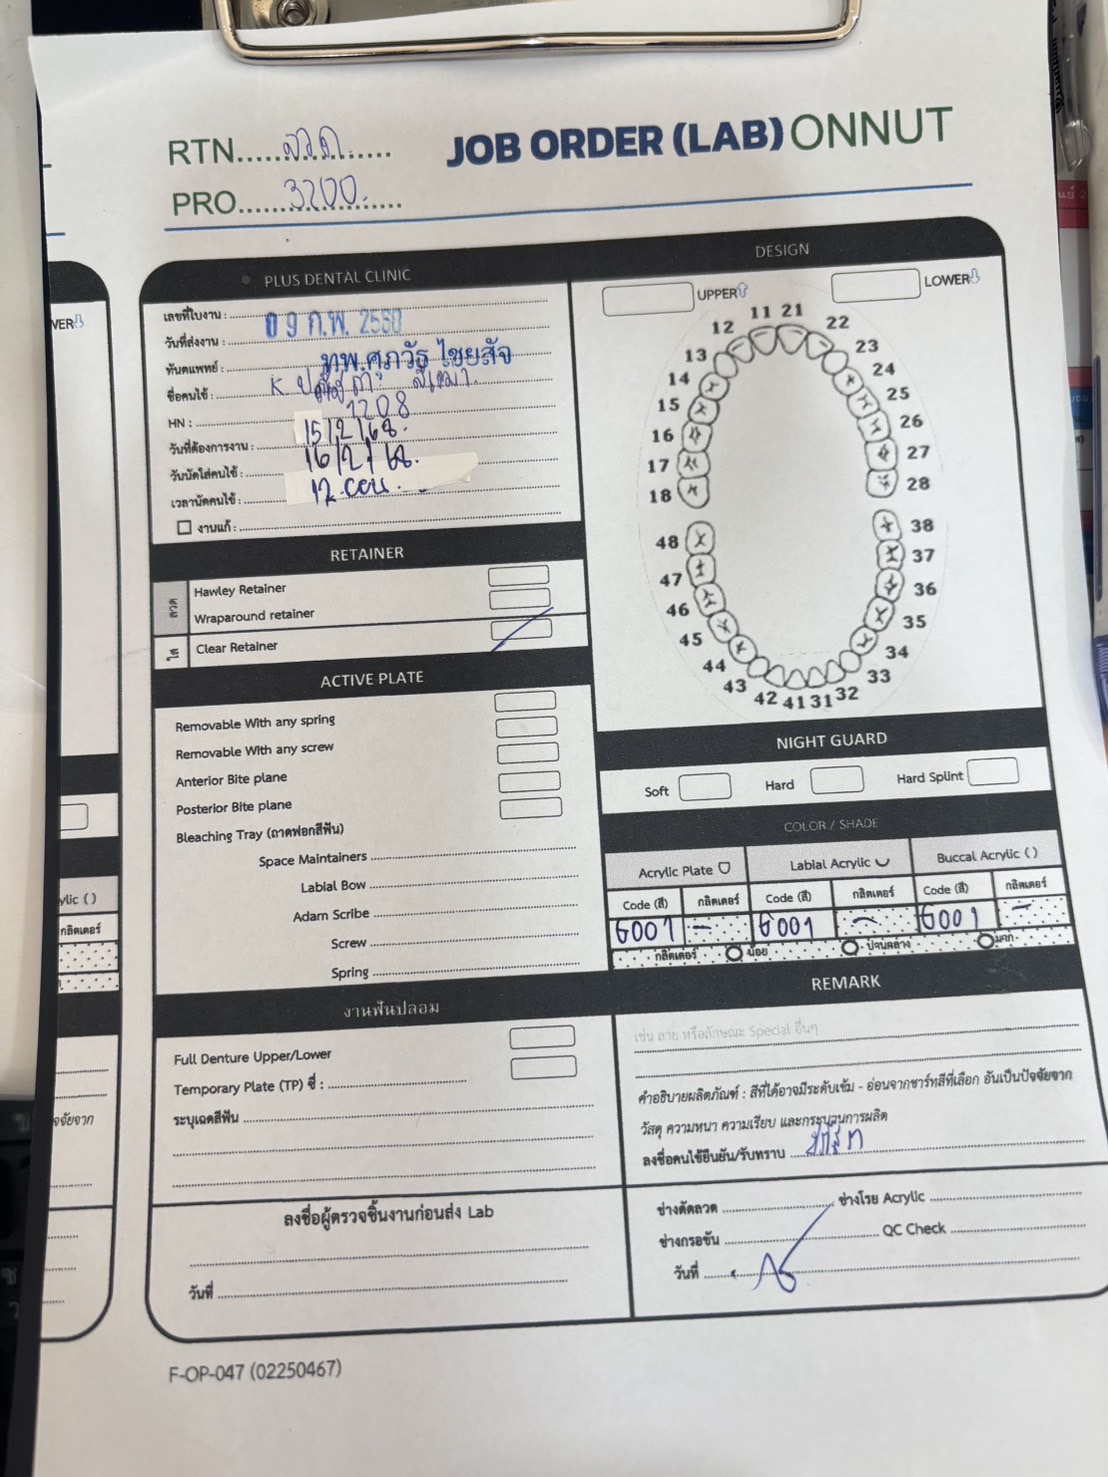 RTN.....ลวด......
JOB ORDER (LAB) ONNUT
PRO.....3200.......
PLUS DENTAL CLINIC
เลขที่ใบงาน :
วันที่ส่งงาน : 09 ก.พ. 2568
ทันตแพทย์ : ทพ.ศุภวัฐ ไชยสัจ
ชื่อคนไข้ : K
HN : 1208
วันที่ต้องการงาน : 15/2/68.
วันนัดใส่คนไข้ : 16/2/68.
เวลานัดคนไข้ : 12.00น.
งานแก้ :
RETAINER
ลวด
Hawley Retainer
Wraparound retainer
ใส
Clear Retainer
ACTIVE PLATE
Removable With any spring
Removable With any screw
Anterior Bite plane
Posterior Bite plane
Bleaching Tray (ถาดฟอกสีฟัน)
Space Maintainers
Labial Bow
Adam Scribe
Screw
Spring
งานฟันปลอม
Full Denture Upper/Lower
Temporary Plate (TP) ซี่ :
ระบุเฉดสีฟัน
ลงชื่อผู้ตรวจชิ้นงานก่อนส่ง Lab
วันที่
DESIGN
UPPER
LOWER
11 21
12 22
13 23
14 24
15 25
16 26
17 27
18 28
48 38
47 37
46 36
45 35
44 34
43 33
42 41 31 32
NIGHT GUARD
Soft
Hard
Hard Splint
COLOR / SHADE
Acrylic Plate
Labial Acrylic
Buccal Acrylic ( )
Code (สี) กลิตเตอร์ Code (สี) กลิตเตอร์ Code (สี) กลิตเตอร์
G001 - G001 - G001 -
กลิตเตอร์ น้อย ปานกลาง มาก
REMARK
เช่น ลาย หรือลักษณะ Special อื่นๆ
คำอธิบายผลิตภัณฑ์ : สีที่ได้อาจมีระดับเข้ม - อ่อนจากชาร์ทสีที่เลือก อันเป็นปัจจัยจาก
วัสดุ ความหนา ความเรียบ และกระบวนการผลิต
ลงชื่อคนไข้ยืนยัน/รับทราบ
ช่างดัดลวด
ช่างโรย Acrylic
ช่างกรอขัน
QC Check
วันที่
F-OP-047 (02250467)
VER
ylic ( )
กลิตเตอร์
จจัยจาก